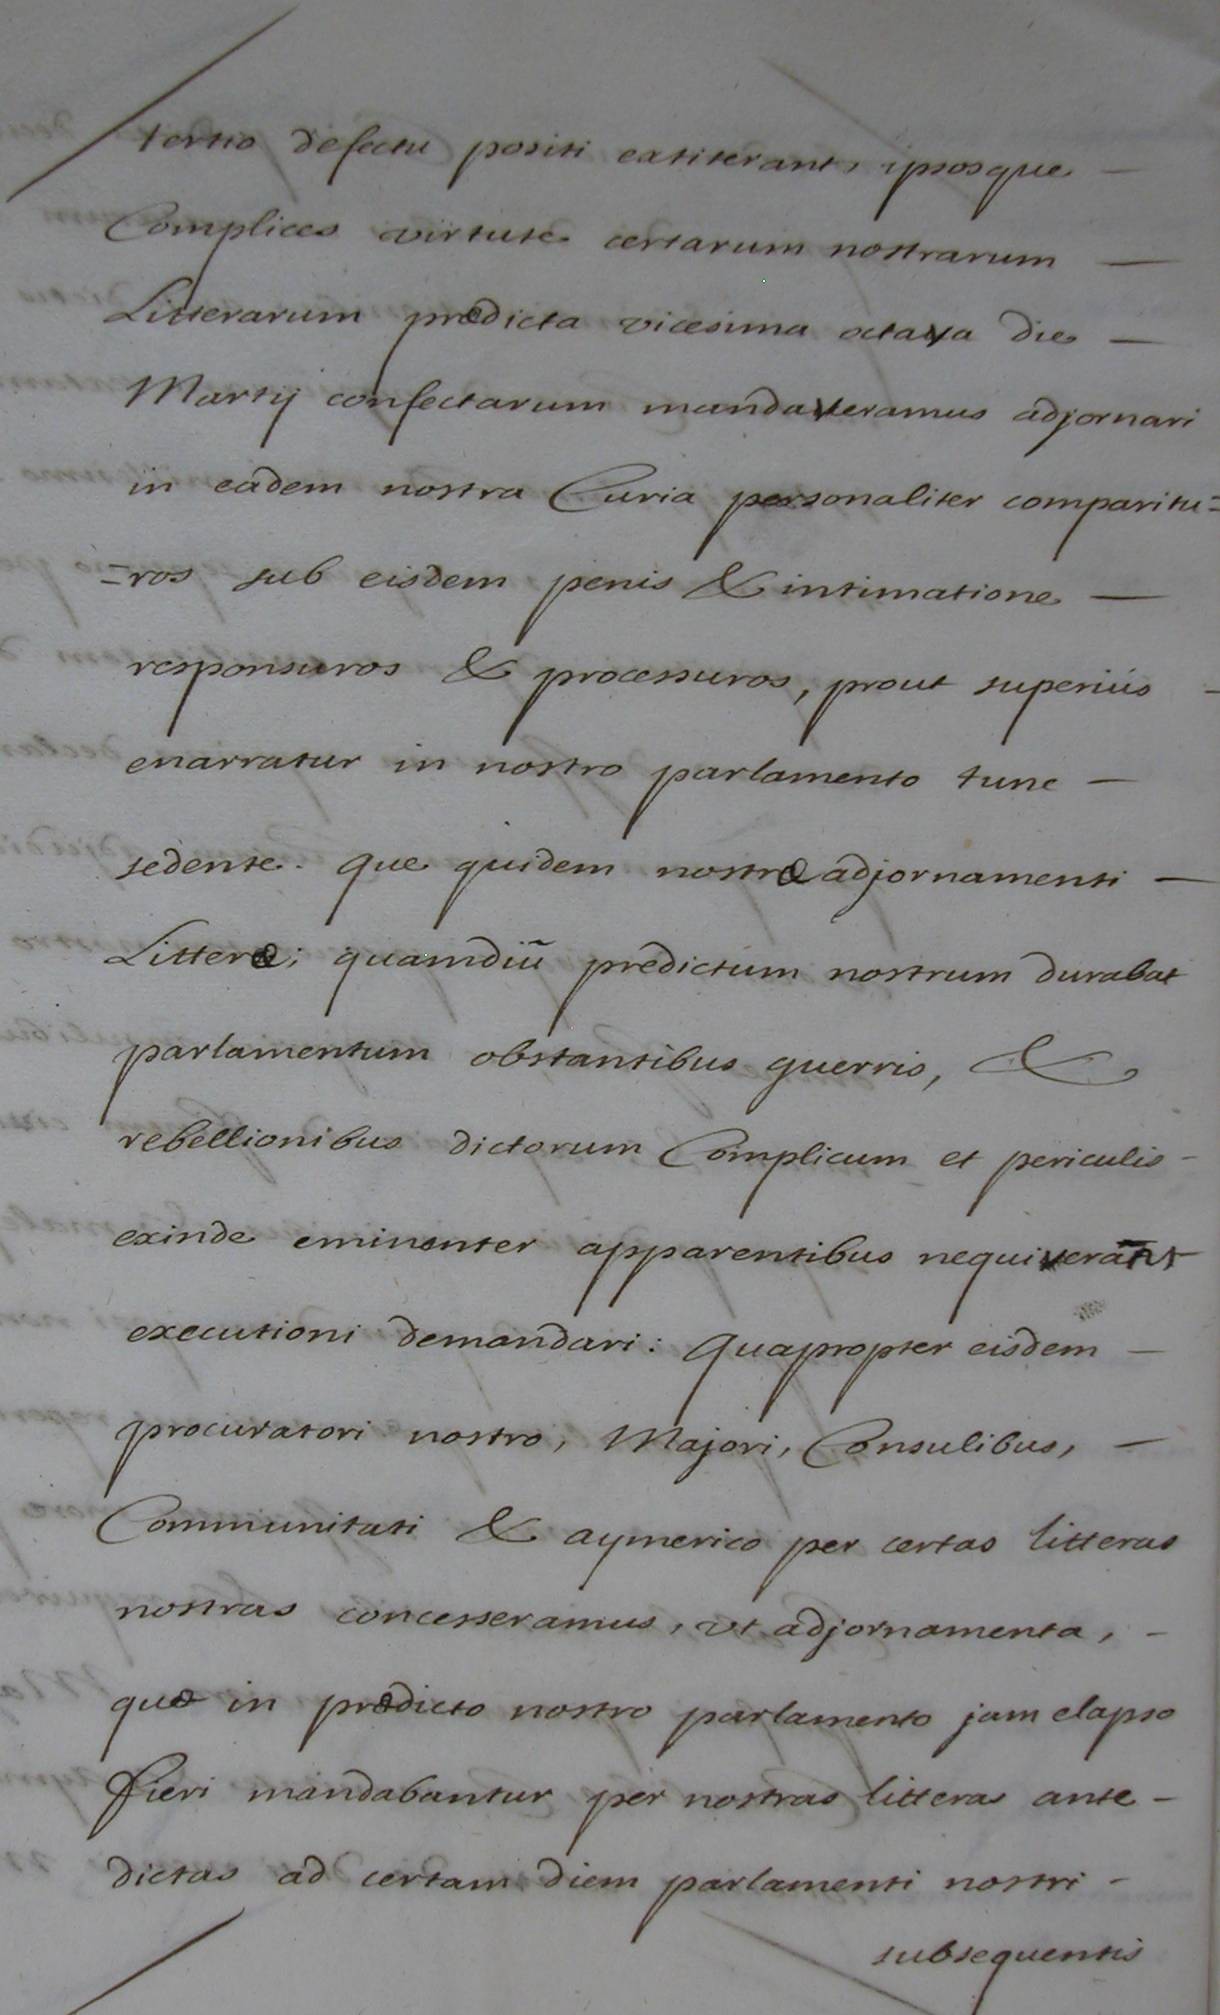 tertio defectu positi extiterant, ipsosque —
Complices virtute certarum nostrarum —
Litterarum prædicta vicesima octava die —
Martij confectarum mandaveramus adjornari
in eadem nostra Curia personaliter comparitu=
=ros sub eisdem penis & intimatione —
responsuros & processuros, prout superiùs -
enarratur in nostro parlamento tunc —
sedente. que quidem nostræ adjornamenti —
Litteræ; quamdiũ predictum nostrum durabat
parlamentum obstantibus guerris, &
rebellionibus dictorum Complicum et periculis -
exinde eminenter apparentibus nequiverant
executioni demandari: quapropter eisdem —
procuratori nostro, Majori, Consulibus, —
Communitati & aymerico per certas litteras
nostras concesseramus, vt adjornamenta, -
quæ in prædicto nostro parlamento jam elapso
fieri mandabantur per nostras litteras ante -
dictas ad certam diem parlamenti nostri -
subsequentis